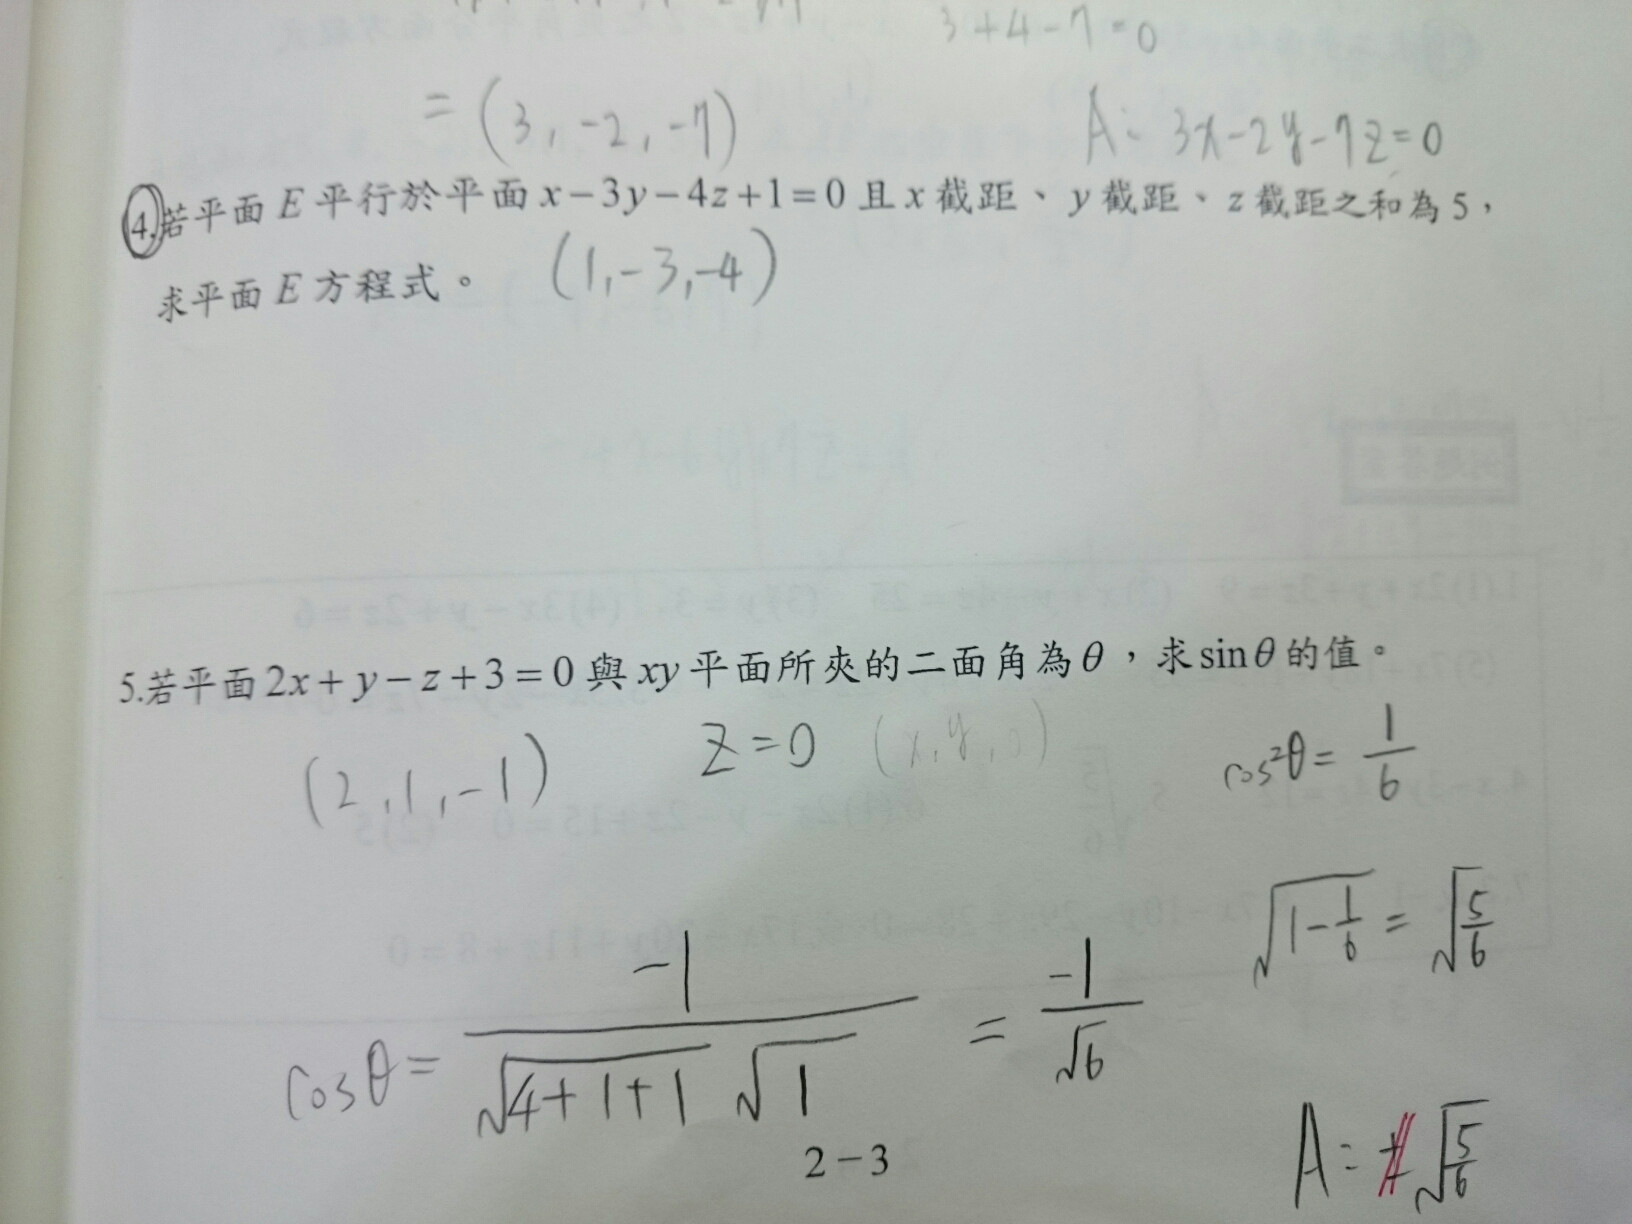 3+4-7=0
= (3, -2, -7)
A: 3x-2y-7z=0
4.若平面 E 平行於平面 x-3y-4z+1=0 且 x 截距、y 截距、z 截距之和為 5,
求平面 E 方程式。 (1,-3,-4)
5.若平面 2x+y-z+3=0 與 xy 平面所夾的二面角為θ,求 sinθ 的值。
(2,1,-1) z=0 (x,y,0) cos²θ= 1/6
√(1-1/6) = √(5/6)
cosθ= -1/(√(4+1+1) √1) = -1/√6
2-3
A: ±√(5/6)